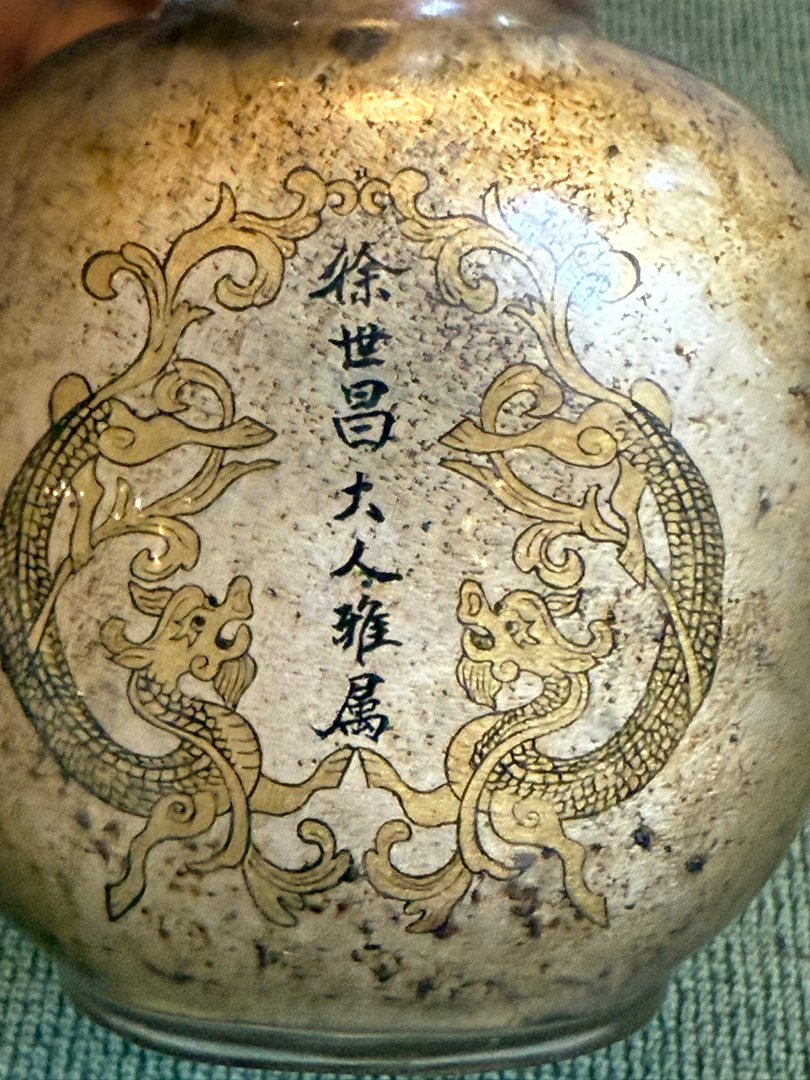 徐世昌大人雅属